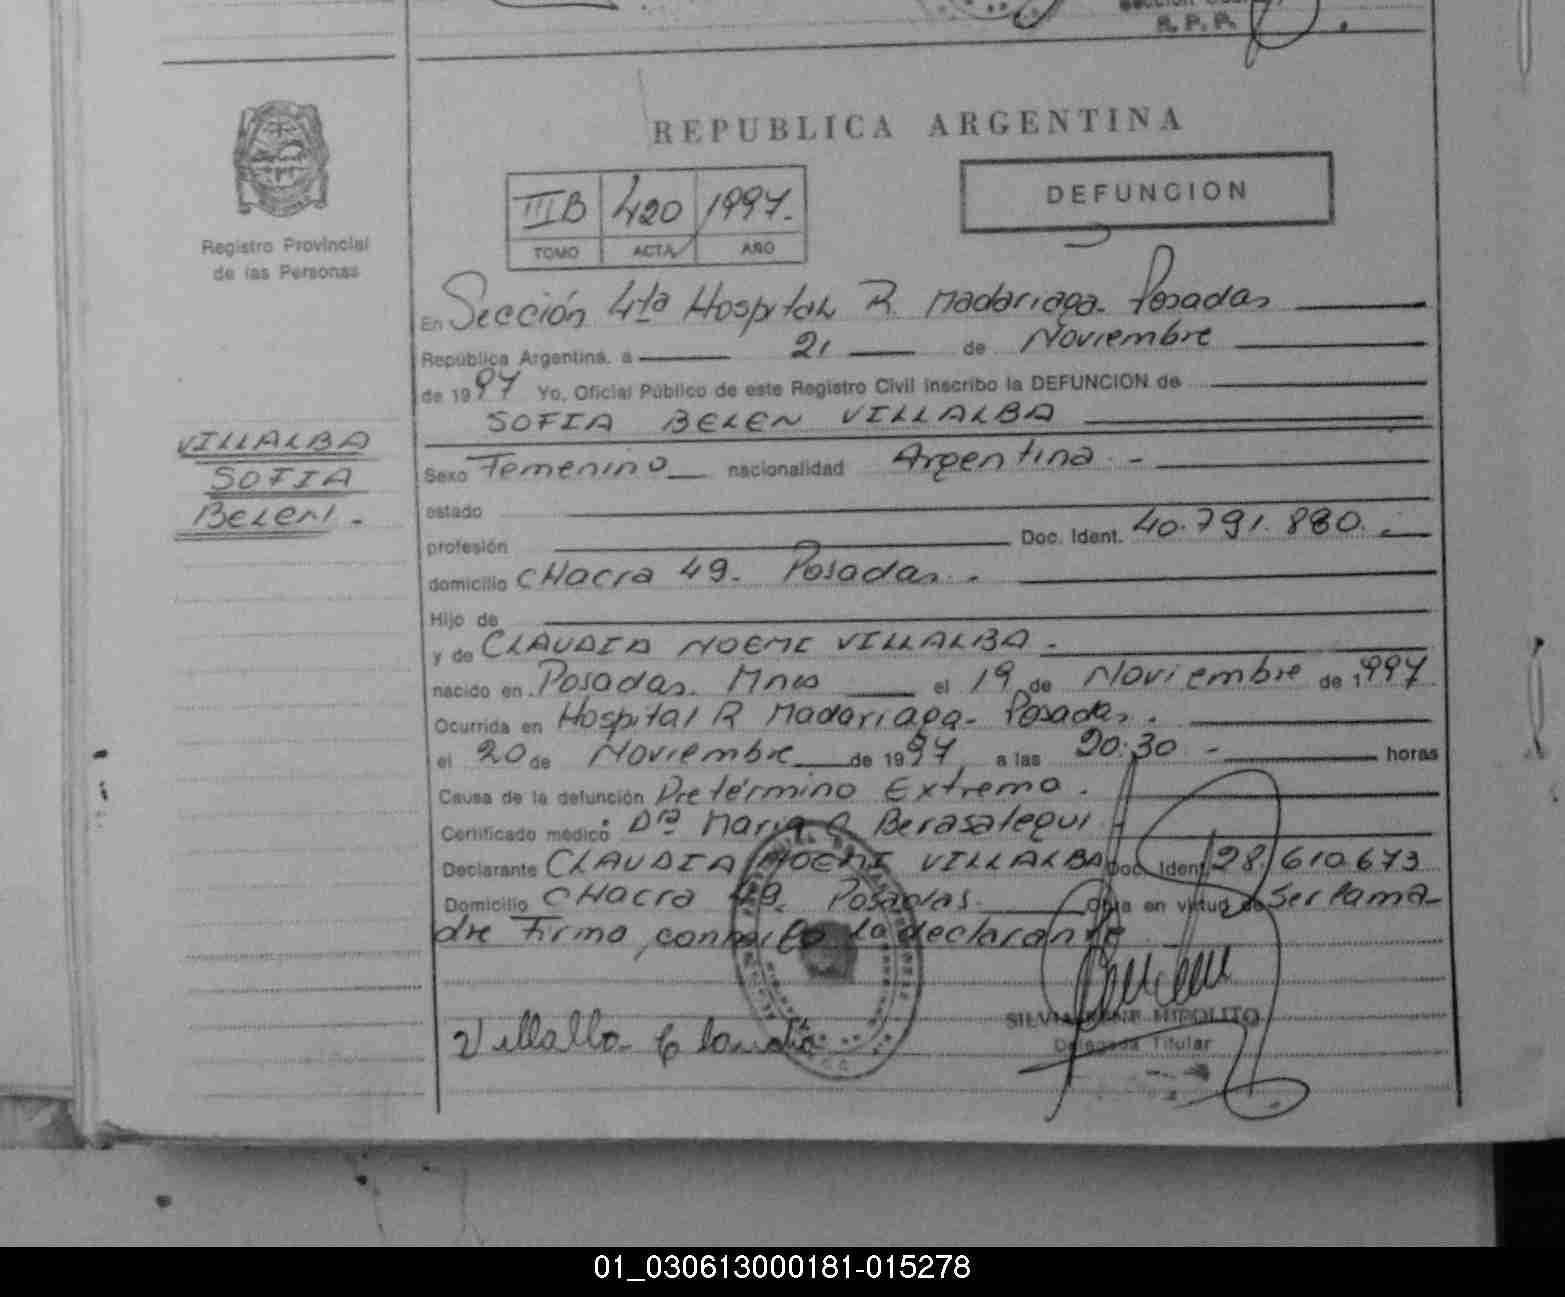 R. P. P.
REPUBLICA ARGENTINA
III B 420 1997.
TOMO ACTA AÑO
DEFUNCION
Registro Provincial
de las Personas
En Sección 4ta Hospital R. Madariaga. Posadas
República Argentina, a 21 de Noviembre
de 1997 Yo, Oficial Público de este Registro Civil inscribo la DEFUNCION de
SOFIA BELEN VILLALBA
VILLALBA
SOFIA
BELEN.
Sexo Femenino nacionalidad Argentina. -
estado
profesión Doc. Ident. 40.791.880. -
domicilio CHacra 49. Posadas. -
Hijo de
y de CLAUDIA NOEMI VILLALBA. -
nacido en Posadas. Mnes el 19 de Noviembre de 1997
Ocurrida en Hospital R Madariaga. Posadas.
el 20 de Noviembre de 1997 a las 20:30 - horas
Causa de la defunción Pretérmino Extremo.
Certificado médico: Dra Maria Berasategui
Declarante CLAUDIA NOEMI VILLALBA Doc. Ident. 28.610.673
Domicilio CHacra 49. Posadas. Obra en virtud de Ser la ma-
dre Firma, conmigo la declarante
Villalba Claudia
SILVIA IRENE HIPOLITO
Delegada Titular
01_030613000181-015278